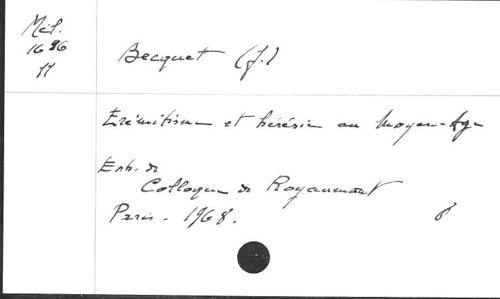 Mél.
1686
11
Becquet (J.)
Erémitisme et hérésie au Moyen-Age
Extr. de
Colloque de Royaumont
Paris - 1968.
8°